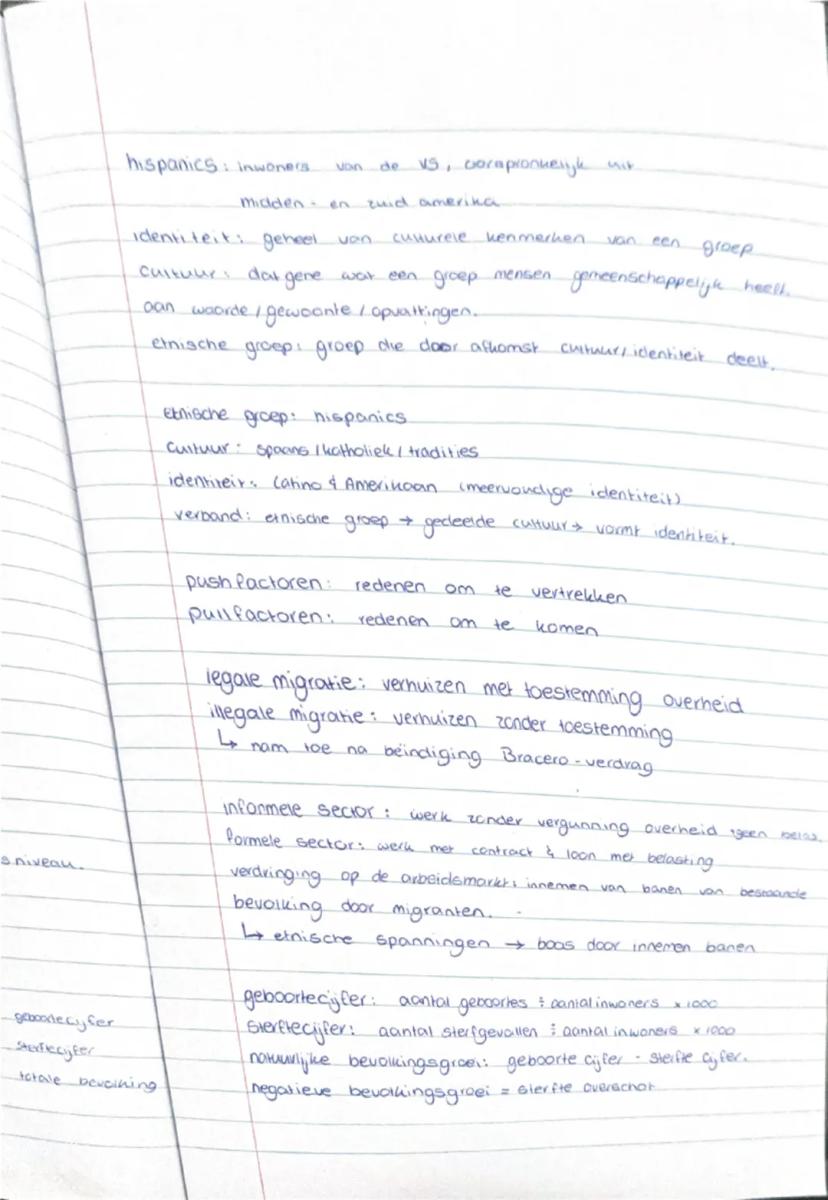 hispanics: inwoners van de VS, oorspronkelijk uit
midden- en zuid amerika
identiteit: geheel van culturele kenmerken van een groep
cultuur: datgene wat een groep mensen gemeenschappelijk heeft.
aan waarde / gewoonte / opvattingen.
etnische groep: groep die door afkomst cultuur/identiteit deelt.
etnische groep: hispanics
cultuur: spaans / katholiek / tradities
identiteit: Latino & Amerikaan (meervoudige identiteit)
verband: etnische groep → gedeelde cultuur → vormt identiteit.
pushfactoren: redenen om te vertrekken
pullfactoren: redenen om te komen
legale migratie: verhuizen met toestemming overheid
illegale migratie: verhuizen zonder toestemming
↳ nam toe na beindiging Bracero-verdrag
informele sector: werk zonder vergunning overheid geen
formele sector: werk met contract & loon met belasting
s niveau.
verdringing op de arbeidsmarkt: innemen van banen van bestaande
bevolking door migranten.
↳ etnische spanningen → boos door innemen banen
geboortecijfer: aantal geboortes ÷ aantal inwoners × 1000
geboortecijfer
sterftecijfer: aantal sterfgevallen ÷ aantal inwoners × 1000
sterftecijfer
natuurlijke bevolkingsgroei: geboorte cijfer - sterfte cijfer.
totale bevolking
negatieve bevolkingsgroei = sterfte overschot